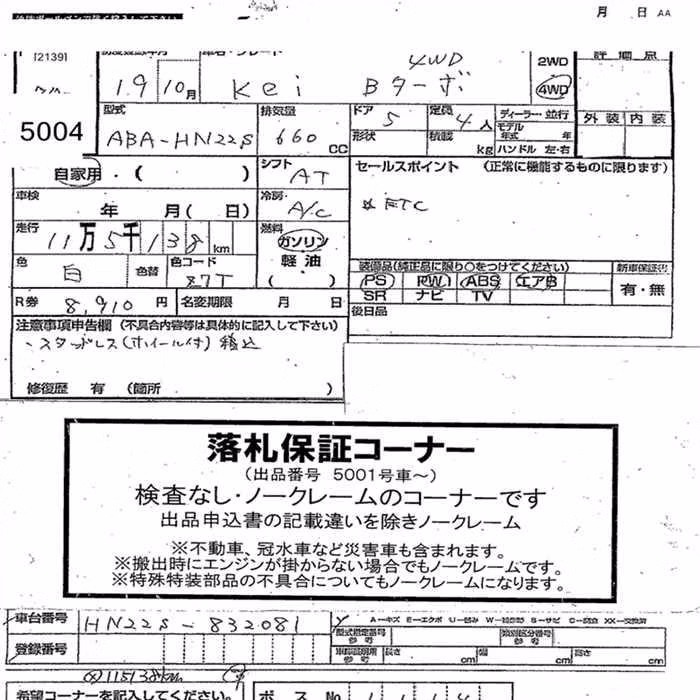 月 日 AA
[2139]
評価点
4WD
19 10月 Kei Bターボ
2WD
4WD
5004
型式 ABA-HN22S
排気量 660 CC
ドア 5
定員 4人
ディーラー・並行
モデル年式 年
形状
積載 kg
ハンドル 左・右
外装 内装
自家用・( )
シフト AT
セールスポイント (正常に機能するものに限ります)
車検 年 月( 日)
冷房 A/C
※ ETC
走行 11万5千138km
燃料 ガソリン
軽油
色 白
色替
色コード 87T
装備品(純正品に限り○をつけてください)
新車保証書
PS PW ABS エアB
SR ナビ TV
有・無
R券 8,910 円
名変期限 月 日
後日品
注意事項申告欄 (不具合内容等は具体的に記入して下さい)
・スタッドレス(ホイール付)積込
修復歴 有 (箇所 )
落札保証コーナー
(出品番号 5001号車~)
検査なし・ノークレームのコーナーです
出品申込書の記載違いを除きノークレーム
※不動車、冠水車など災害車も含まれます。
※搬出時にエンジンが掛からない場合でもノークレームです。
※特殊特装部品の不具合についてもノークレームになります。
車台番号 HN22S-832081
A-キズ E-エクボ U-凹み W-補修跡 S-サビ C-腐食 XX-交換済
型式指定番号 参考
類別区分番号 参考
登録番号
車検証明用 参考 長さ cm 幅 cm 高さ cm
115138km
希望コーナーを記入してください。
ボス No 1 1 1 4